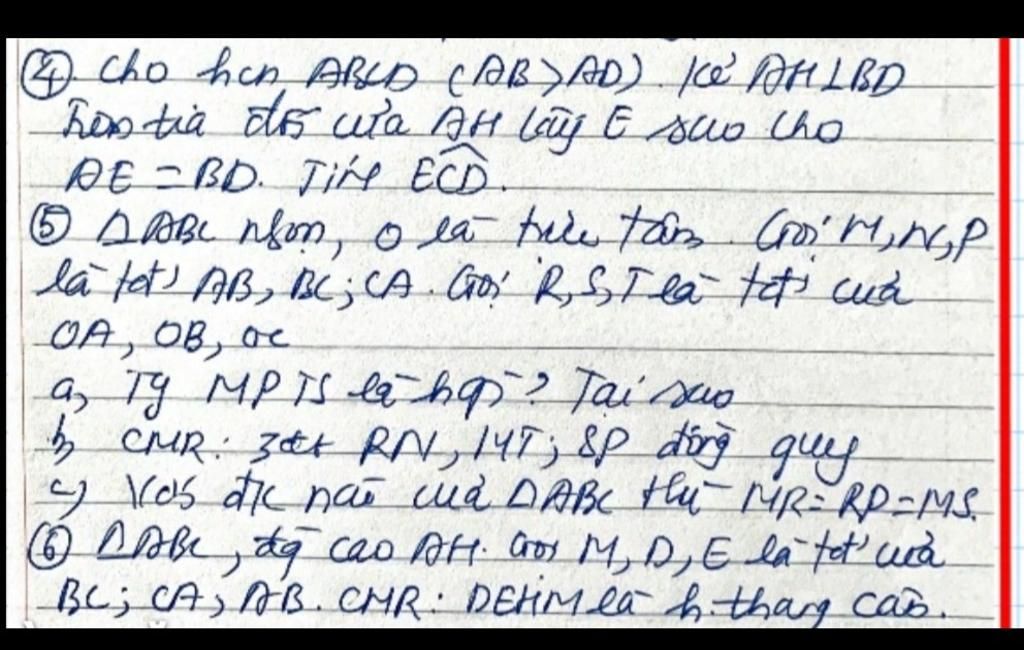 ④. Cho hcn ABCD (AB>AD) kẻ AH⊥BD
trên tia đối của AH lấy E sao cho
AE = BD. Tính ECD.
⑤ ΔABC nhọn, O là trực tâm. Gọi M,N,P
là tđ' AB, BC; CA. Gọi R,S,T là tđ' của
OA, OB, OC
a, Tg MPTS là hgì? Tại sao
b, CMR: 3đt RN, MT; SP đồng quy
c, Với đk nào của ΔABC thì MR=RP=MS.
⑥ ΔABC, đg cao AH. Gọi M,D,E là tđ' của
BC; CA, AB. CMR: DEHM là h.thang cân.